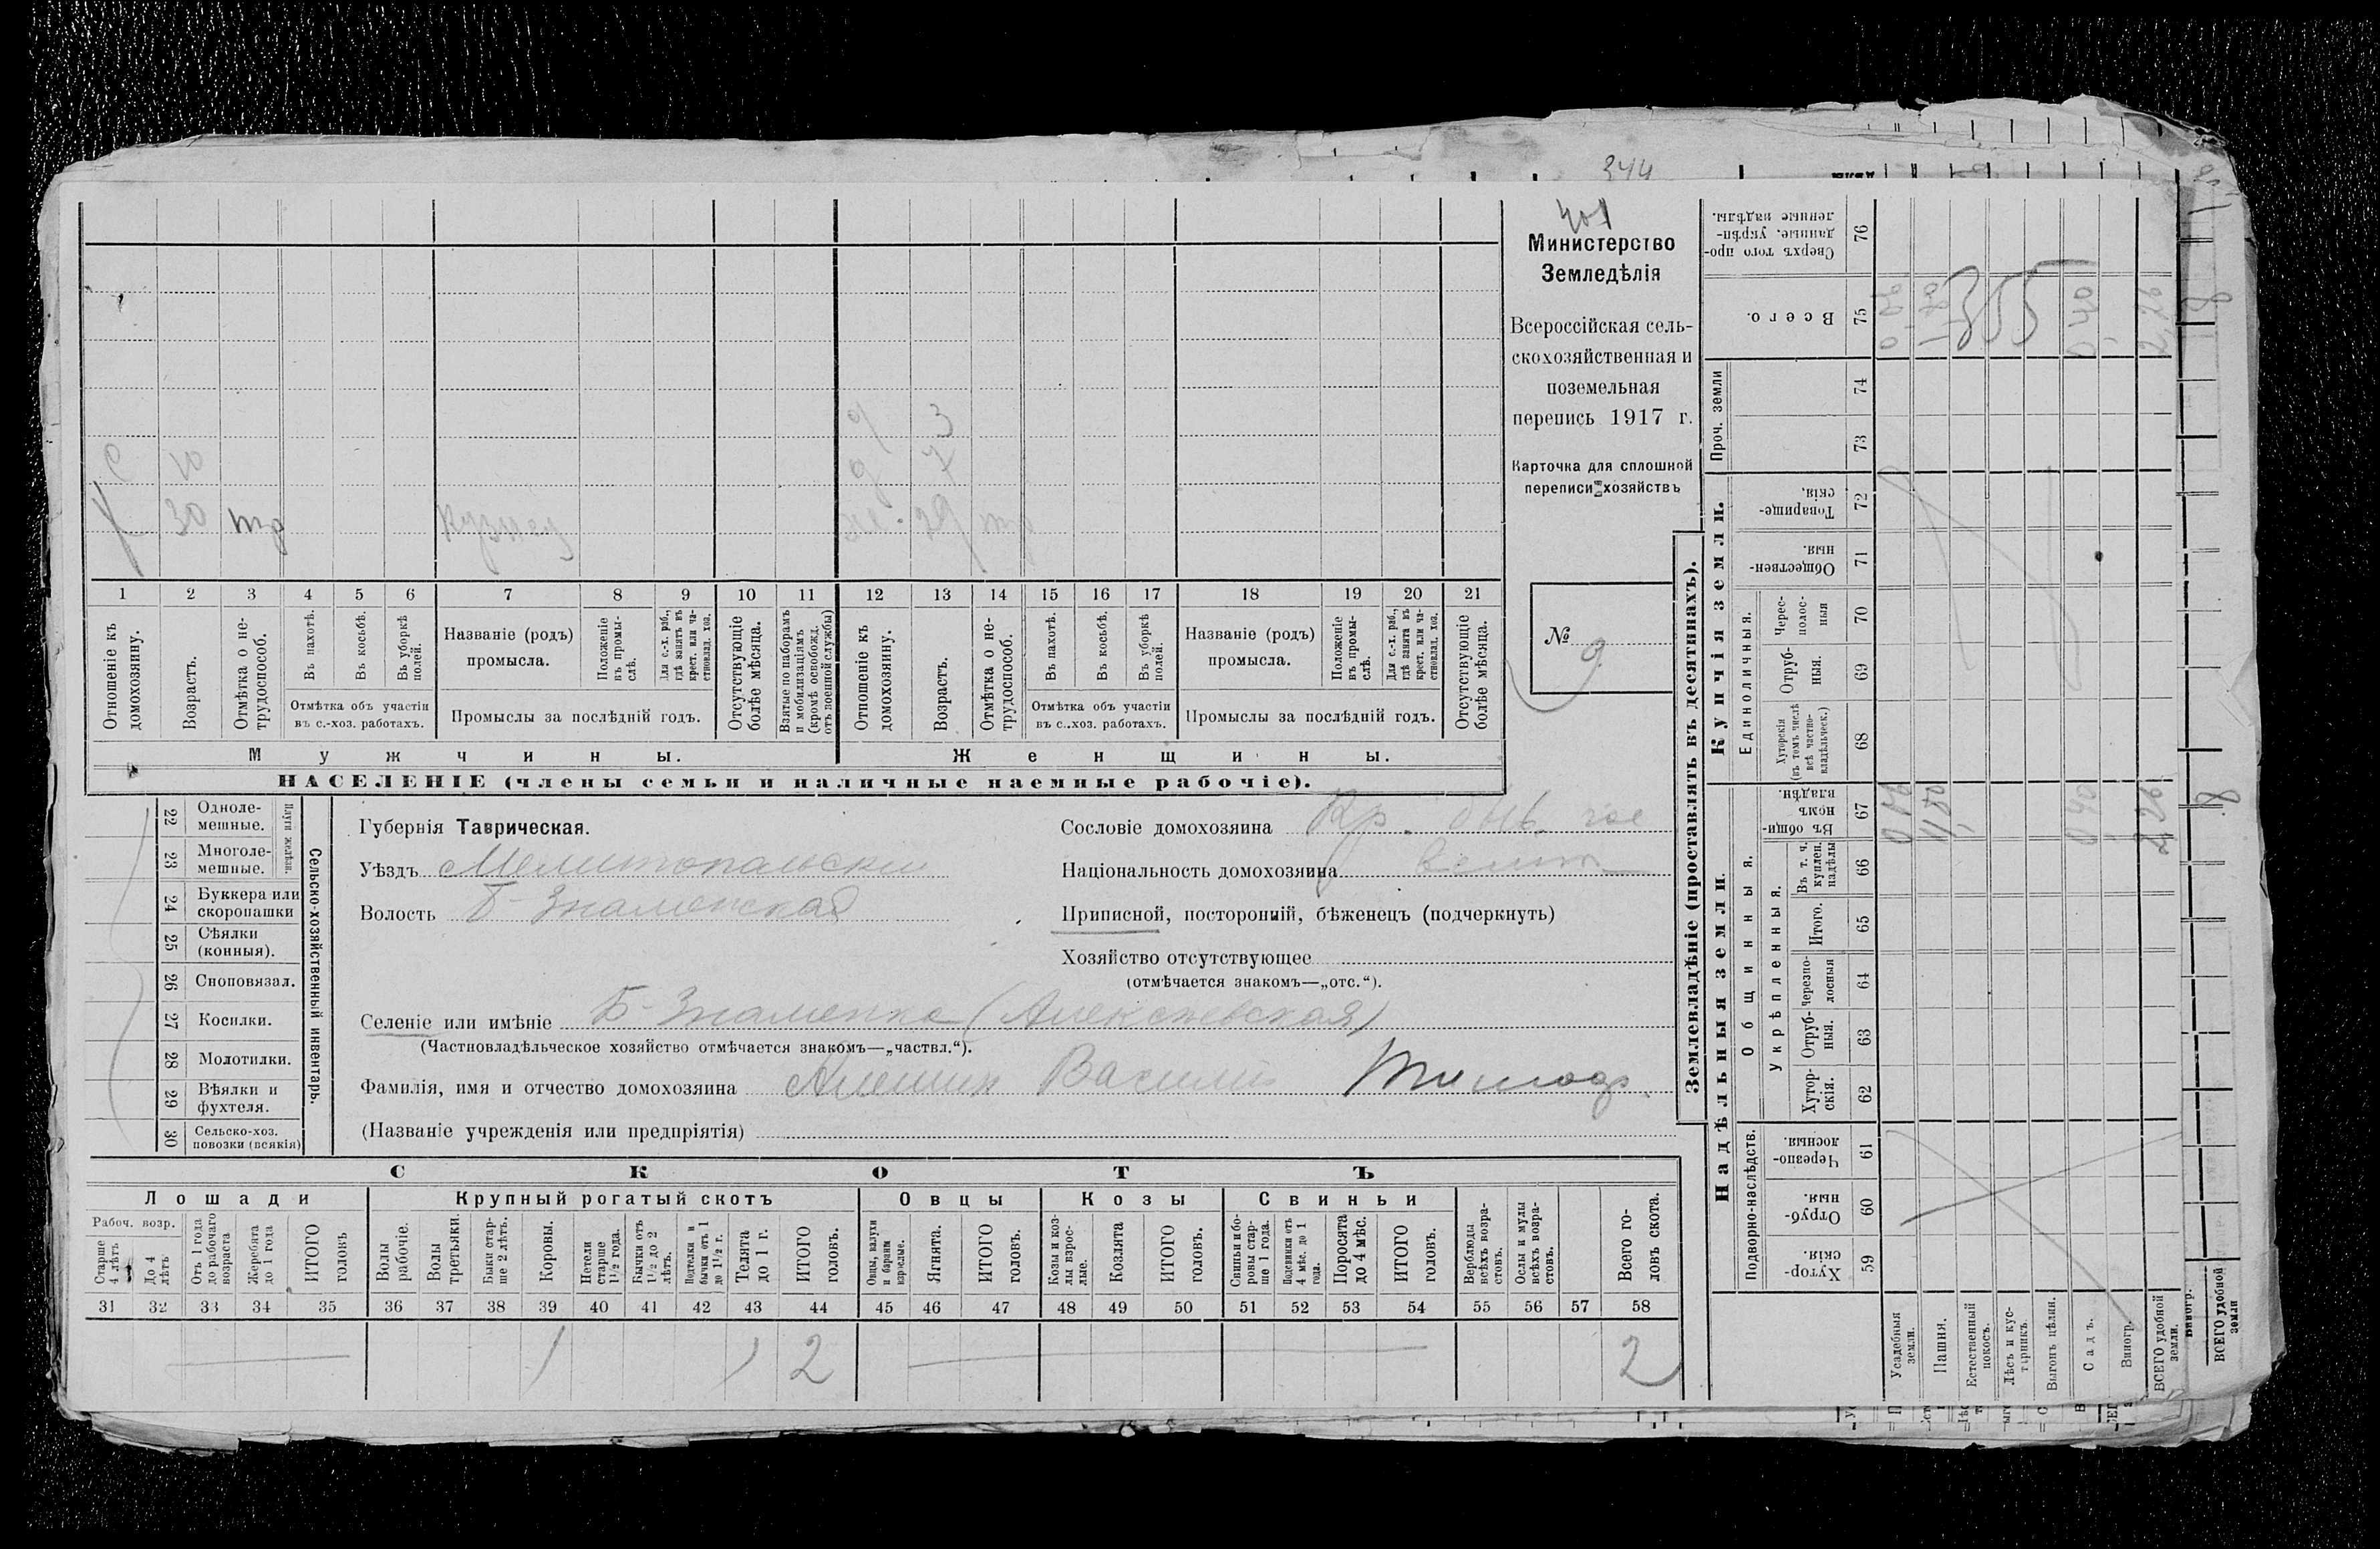 344
401
Министерство
Земледѣлія
Всероссійская сель-
скохозяйственная и
поземельная
перепись 1917 г.
Карточка для сплошной
переписи хозяйствъ
№ 9
д 3
С 10 д 7
30 кузнец 29
1 2 3 4 5 6 7 8 9 10 11 12 13 14 15 16 17 18 19 20 21
Отношеніе къ домохозяину.
Возрастъ.
Отмѣтка о не-трудоспособ.
Въ пахотѣ.
Въ косьбѣ.
Въ уборкѣ полей.
Отмѣтка объ участіи въ с.-хоз. работахъ.
Названіе (родъ) промысла.
Положеніе въ промы-слѣ.
Для с.-х. раб., гдѣ занятъ въ крест. или ча-стновлад. хоз.
Промыслы за послѣдній годъ.
Отсутствующіе болѣе мѣсяца.
Взятые по наборамъ и мобилизаціямъ (кромѣ освобожд. отъ военной службы)
Отношеніе къ домохозяину.
Возрастъ.
Отмѣтка о не-трудоспособ.
Въ пахотѣ.
Въ косьбѣ.
Въ уборкѣ полей.
Отмѣтка объ участіи въ с..хоз. работахъ.
Названіе (родъ) промысла.
Положеніе въ промы-слѣ.
Для с.-х. раб., гдѣ занята въ крест. или ча-стновлад. хоз.
Промыслы за послѣдній годъ.
Отсутствующіе болѣе мѣсяца.
Мужчины.
Женщины.
НАСЕЛЕНІЕ (члены семьи и наличные наемные рабочіе).
22 Одноле-мешные.
23 Многоле-мешные.
24 Буккера или скоропашки
25 Сѣялки (конныя).
26 Сноповязал.
27 Косилки.
28 Молотилки.
29 Вѣялки и фухтеля.
30 Сельско-хоз. повозки (всякія)
Сельско-хозяйственный инвентарь.
Губернія Таврическая.
Уѣздъ Мелитопольскій
Волость Б-Знаменская
Сословіе домохозяина Кр. быв. гос
Національность домохозяина Велик
Приписной, посторонній, бѣженецъ (подчеркнуть)
Хозяйство отсутствующее
(отмѣчается знакомъ—„отс.“).
Селеніе или имѣніе Б-Знаменка (Алексѣевская)
(Частновладѣльческое хозяйство отмѣчается знакомъ—„частвл.“).
Фамилія, имя и отчество домохозяина Алешин Василій Тимоф.
(Названіе учрежденія или предпріятія)
СКОТЪ
Лошади
Крупный рогатый скотъ
Овцы
Козы
Свиньи
Рабоч. возр.
Старше 4 лѣтъ
До 4 лѣтъ
Отъ 1 года до рабочаго возраста
Жеребята до 1 года
ИТОГО головъ
Волы рабочіе.
Волы третьяки.
Быки стар-ше 2 лѣтъ.
Коровы.
Нетели старше 1½ года.
Бычки отъ 1½ до 2 лѣтъ.
Подтелки и бычки отъ 1 до 1½ г.
Телята до 1 г.
ИТОГО головъ.
Овцы, валухи и бараны взрослые.
Ягнята.
ИТОГО головъ.
Козы и коз-лы взрос-лые.
Козлята
ИТОГО головъ.
Свиньи и бо-ровы стар-ше 1 года.
Подсвинки отъ 4 мѣс. до 1 года.
Поросята до 4 мѣс.
ИТОГО головъ.
Верблюды всѣхъ возра-стовъ.
Ослы и мулы всѣхъ возра-стовъ.
Всего го-ловъ скота.
31 32 33 34 35 36 37 38 39 40 41 42 43 44 45 46 47 48 49 50 51 52 53 54 55 56 57 58
1 1 2 2
Землевладѣніе (проставлять въ десятинахъ).
Надѣльныя земли.
Купчія земли.
Подворно-наслѣдств.
Общинныя.
Укрѣпленныя.
Единоличныя.
Проч. земли
Хутор-скія. 59
Отруб-ныя. 60
Черезпо-лосныя. 61
Хутор-скія. 62
Отруб-ныя. 63
Черезпо-лосныя 64
Итого. 65
Въ т. ч. куплен. надѣлы 66
Въ общи-номъ владѣн. 67
Хуторскія (въ томъ числѣ всѣ частно-владѣльческ.) 68
Отруб-ныя. 69
Черес-полос-ныя 70
Обществен-ныя. 71
Товарище-скія. 72
73
74
Всего. 75
Сверхъ того про-данные, укрѣп-ленные надѣлы. 76
Усадебныя земли.
Пашня.
Естественный покосъ.
Лѣсъ и кус-тарникъ.
Выгонъ цѣлин.
Садъ.
Виногр.
ВСЕГО удобной земли.
1,50
0,40
2,26
355
0,40
2,26
Виногр.
ВСЕГО удобной земли